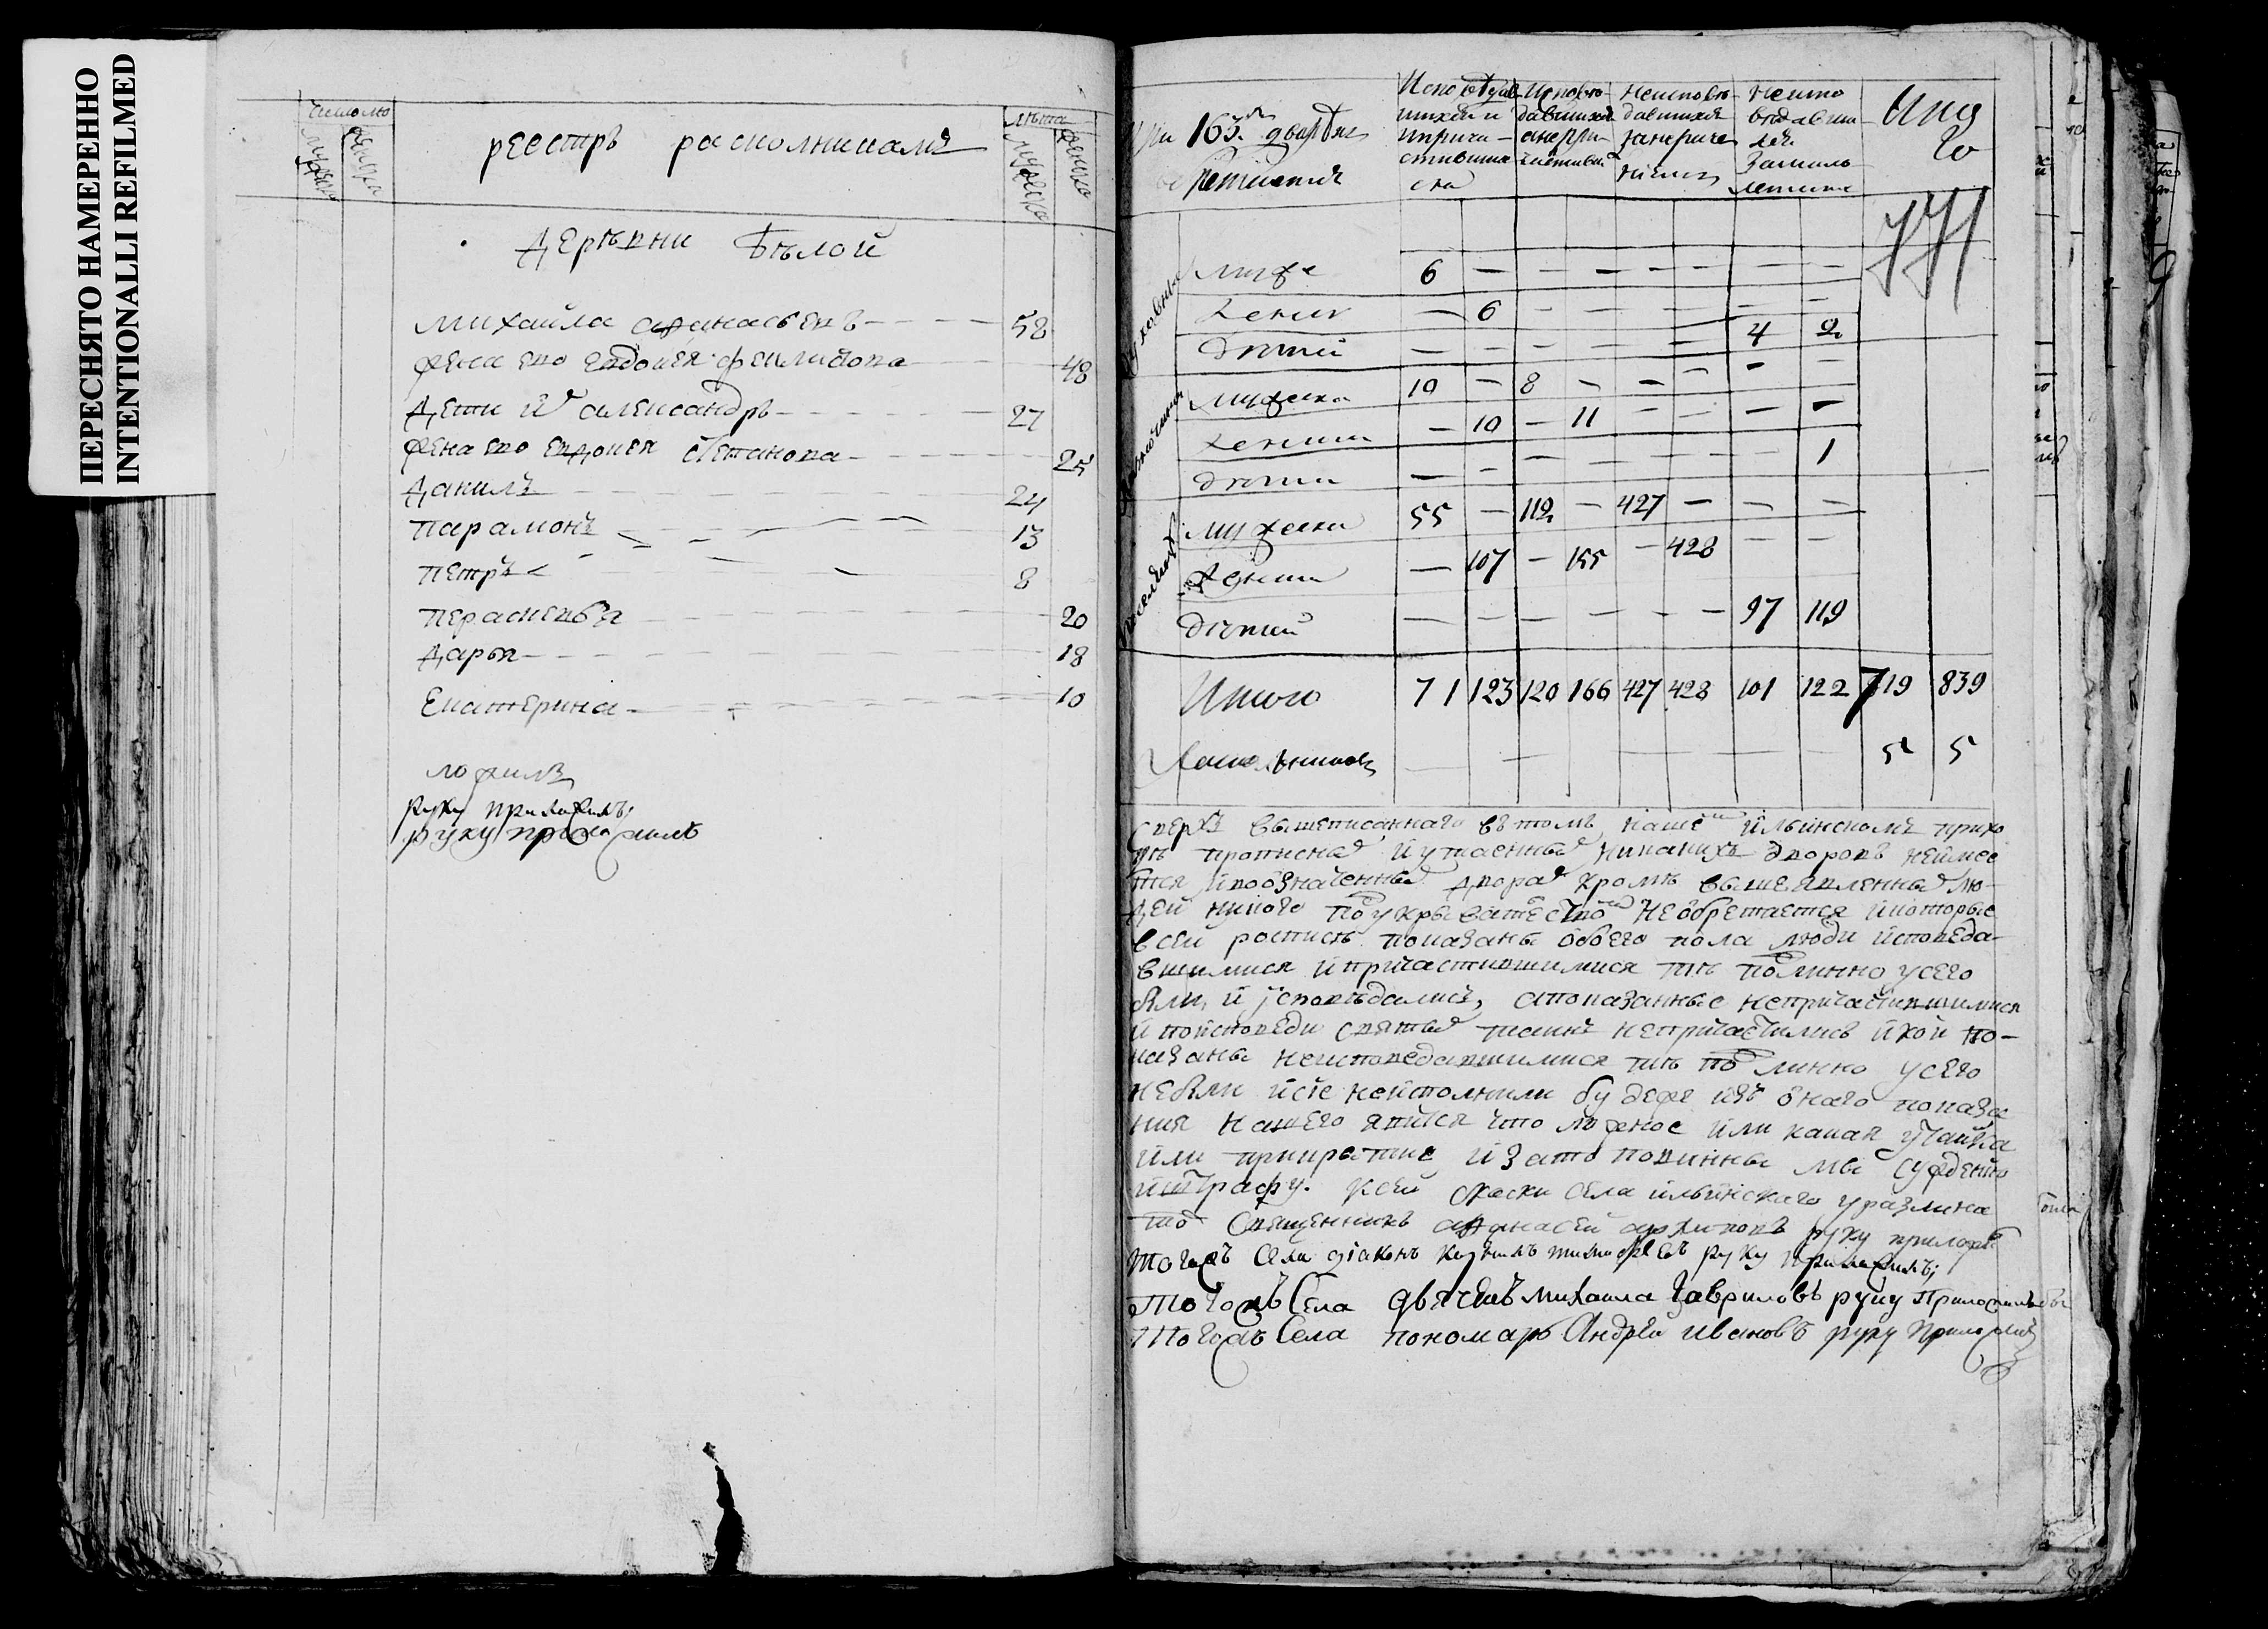 ПЕРЕСНЯТО НАМЕРЕННО
INTENTIONALLI REFILMED
число
мужеска
женска
реестръ расколникамъ
лѣта
мужеска
женска
деревни Бѣлой
михайла афанасьевъ 58
жена ево евдокея филипова 48
дети ихъ александръ 27
жена ево евдокея степанова 25
данилъ 24
парамонъ 13
петръ 8
парасковья 20
дарья 18
Екатерина 10
ложилъ
руку приложилъ;
руку приложилъ
165 дворѣхъ
Исповѣдав
шихся и
причи
стивших
ся
Исповѣ
давшихся
а не при
частивших
Неисповѣ
давшихся
за нераче
нием
Неиспо
вѣдавши
хся
За мало
летием
Ино
го
духовныя
мужеска 6 — — — — — — —
Женска — 6 — — — — — —
дѣтей — — — — — — 4 2
мужеска 10 — 8 — — — — —
женска — 10 — 11 — — — —
дѣтей — — — — — — — 1
мужеска 55 — 112 — 427 — — —
женска — 107 — 155 — 428 — —
дѣтей — — — — — — 97 119
Итого 71 123 120 166 427 428 101 122 719 839
Раскольниковъ 5 5
сверхъ вышеписаннаго въ томъ нашемъ ильинскомъ прихо
дѣ прописныхъ и утаенныхъ никакихъ дворовъ неимее
тся и в означенныхъ дворахъ кромѣ вышеявленныхъ лю-
дей никого по укрывателствомъ необретается и которые
в сей росписи показаны обоего пола люди исповеда-
вшимися и причастившимися тѣ подлинно у сего
были, и исповѣдались, а показанные непричастившимися
и по исповеди святыхъ таинъ непричастились и кои по-
казаны неисповедавшимися тѣ подлинно у сего
небыли и сіе неисполнили буде же изъ онаго показа
ния нашего явится что ложное или какая утайка
или прикрытие и за то повинны мы суждению
и штрафу. К сей скаски села ильинскаго уразлина
то священникъ афанасей архиповъ руку приложилъ
Тогожъ села діаконъ козьма тимофеевъ руку приложилъ;
Тогожъ Села дьячекъ михаила Гавриловъ руку Приложилъ
Тогожъ Села пономарь Андрей ивановъ руку приложилъ